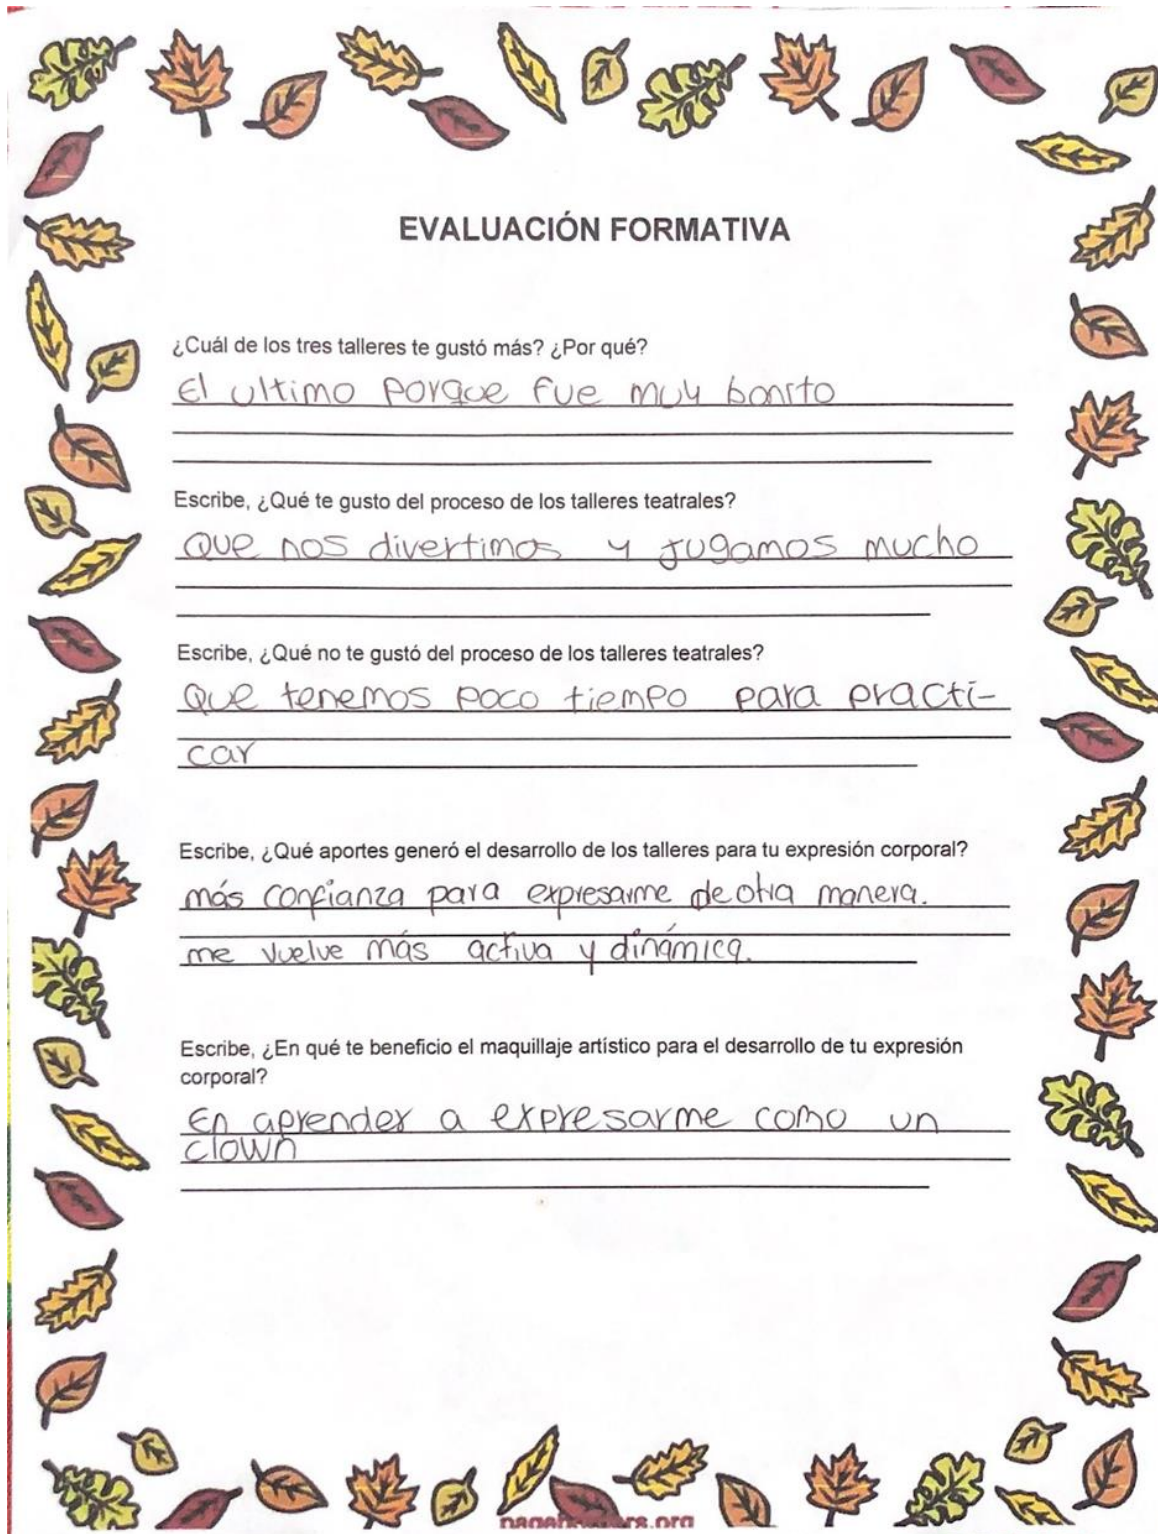 EVALUACIÓN FORMATIVA
¿Cuál de los tres talleres te gustó más? ¿Por qué?
El ultimo porque fue muy bonito
Escribe, ¿Qué te gusto del proceso de los talleres teatrales?
Que nos divertimos y jugamos mucho
Escribe, ¿Qué no te gustó del proceso de los talleres teatrales?
Que tenemos poco tiempo para practi-
car
Escribe, ¿Qué aportes generó el desarrollo de los talleres para tu expresión corporal?
más confianza para expresarme de otra manera.
me vuelve más activa y dinámica.
Escribe, ¿En qué te beneficio el maquillaje artístico para el desarrollo de tu expresión
corporal?
En aprender a expresarme como un
clown